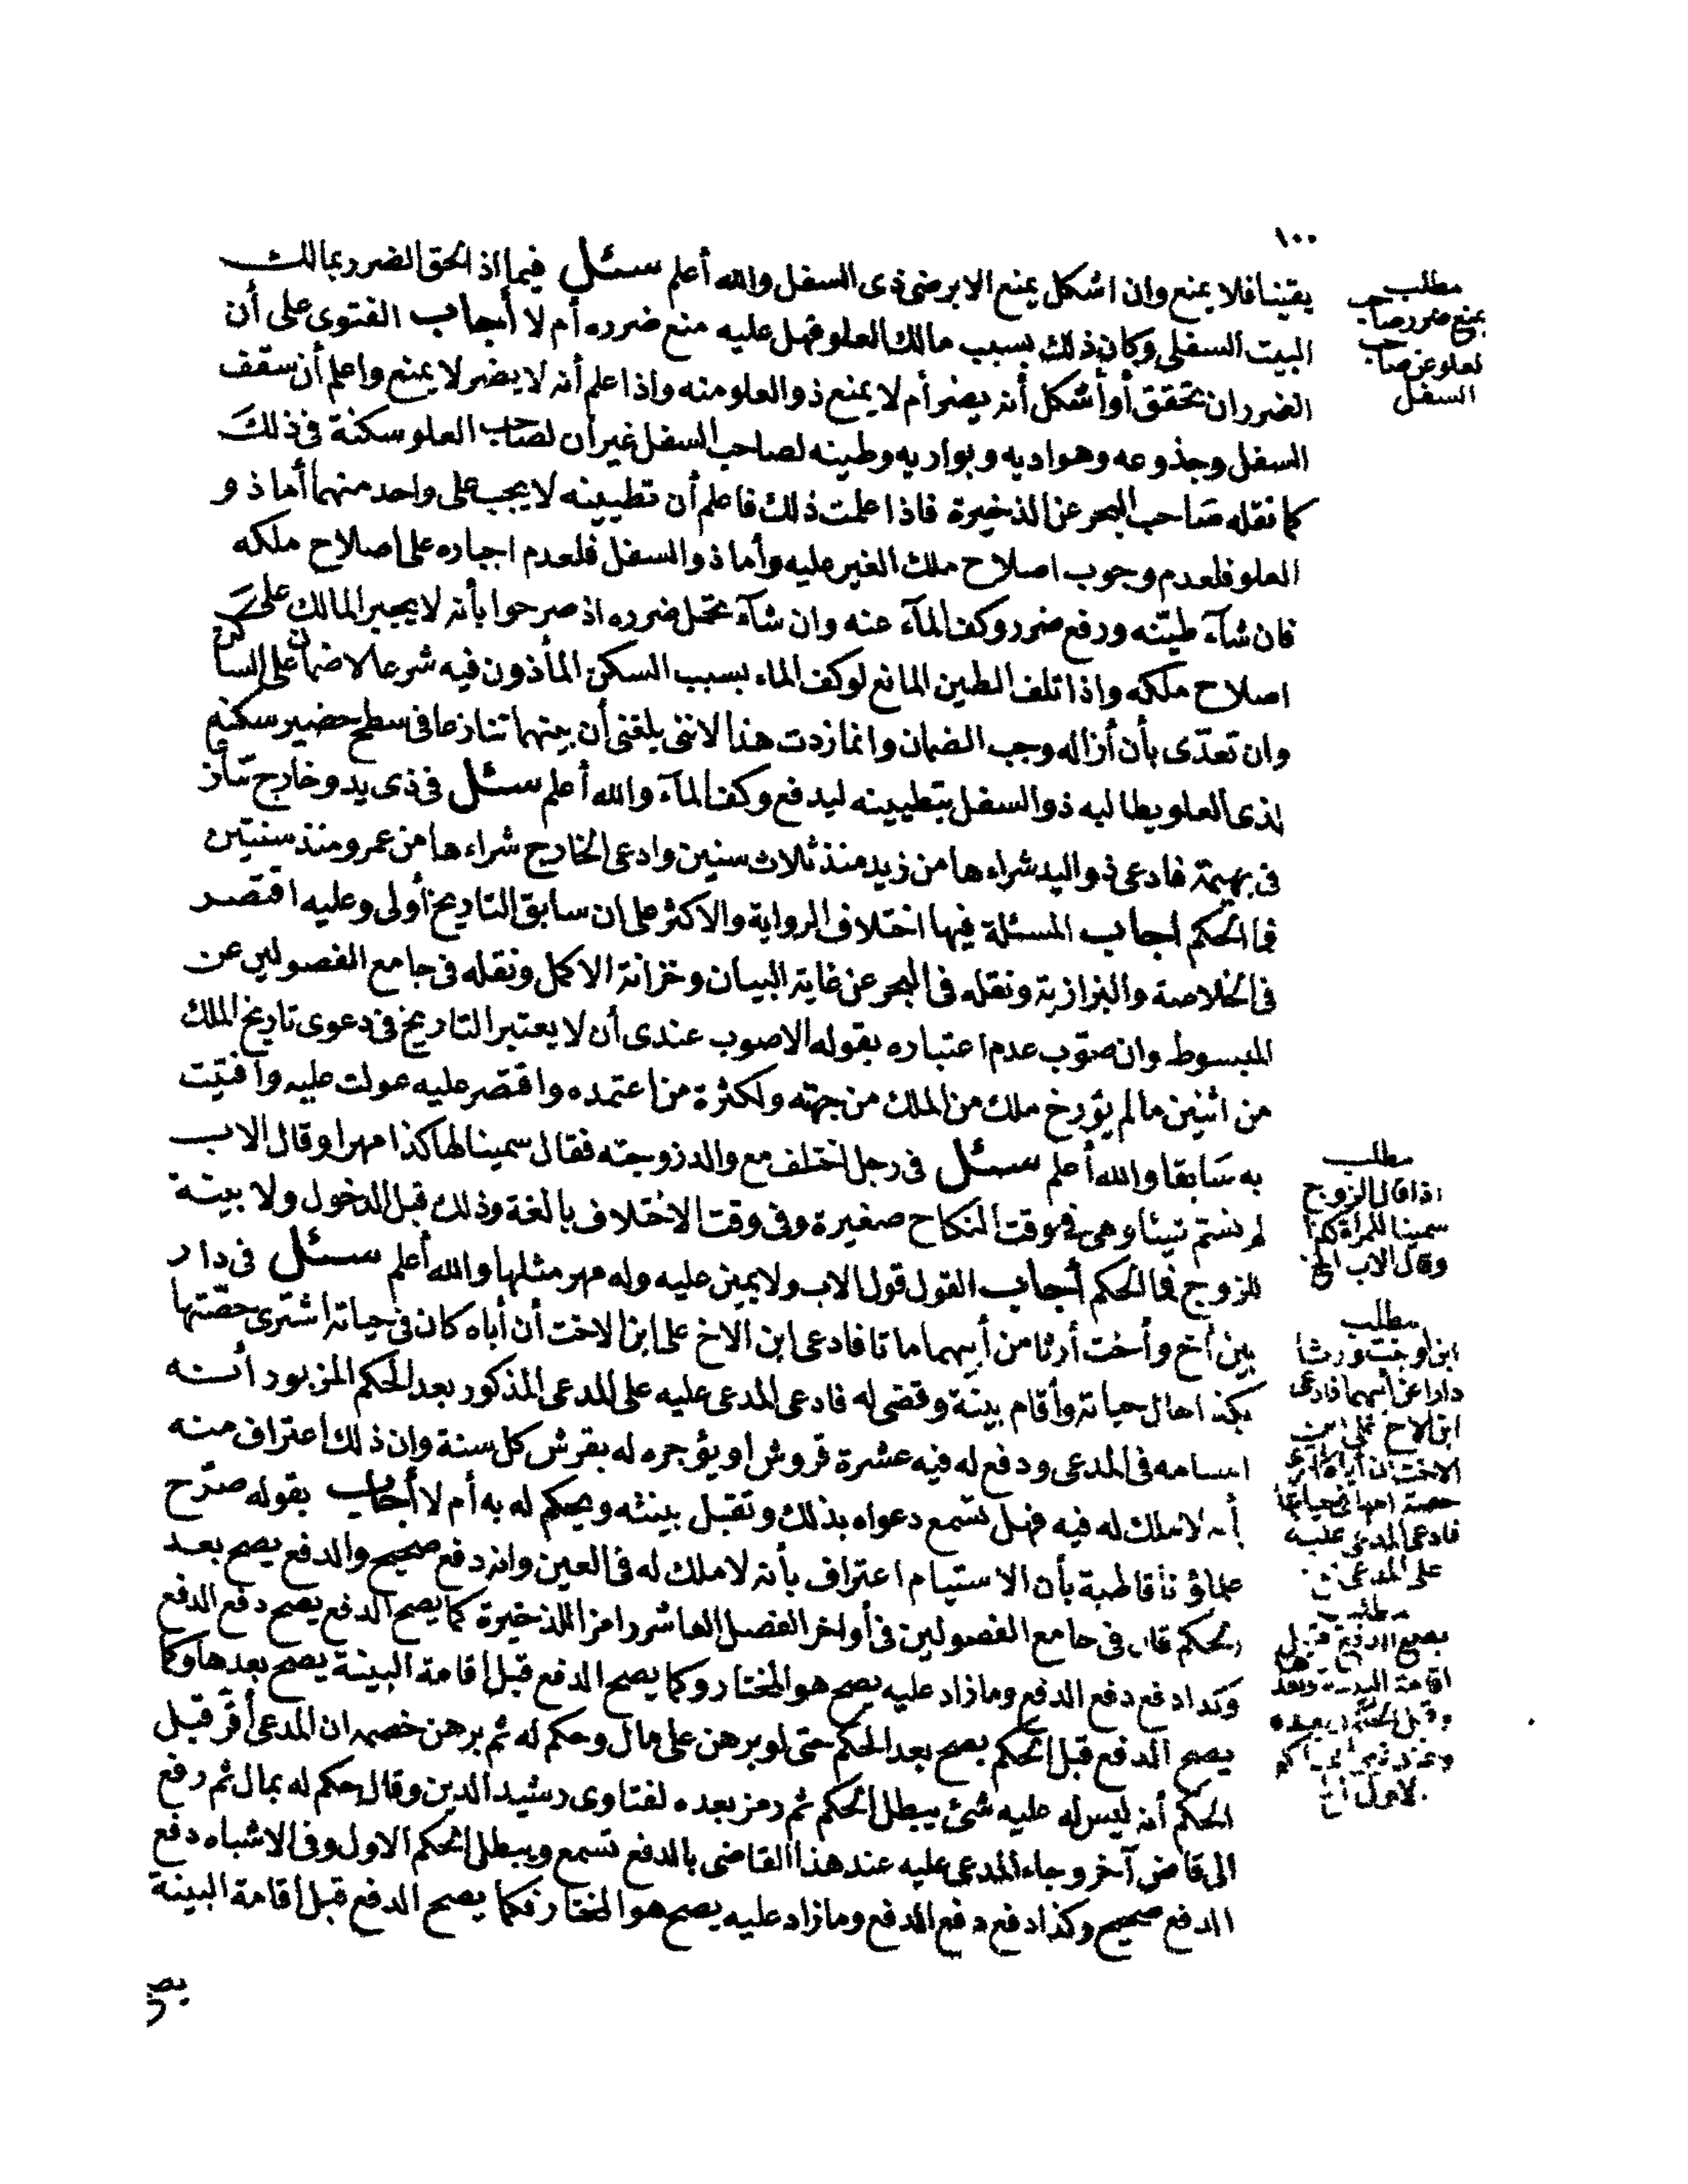 ١٠٠
يقينا فلا يمنع وان اشكل يمنع الابرضى ذى السفل والله أعلم سئل فيما اذ الحق الضرر بمالك
البيت السفلى وكان ذلك بسبب مالك العلو فهل عليه منع ضرره أم لا أجاب الفتوى على أن
الضرر ان تحقق أو أشكل أنه يضر أم لا يمنع ذو العلو منه واذا علم أنه لا يضر لا يمنع واعلم أن سقف
السفل وجذوعه وهواديه وبواريه وطينه لصاحب السفل غير أن لصاحب العلو سكنة فى ذلك
كما نقله صاحب البحر عن الذخيرة فاذا علمت ذلك فاعلم أن تطيينه لا يجب على واحد منهما أما ذو
العلو فلعدم وجوب اصلاح ملك الغير عليه وأما ذو السفل فلعدم اجباره على اصلاح ملكه
فان شآء طيّنه ورفع ضرر وكف المآء عنه وان شآء تحمل ضرره اذ صرحوا بأنه لا يجبر المالك على
اصلاح ملكه واذا تلف الطين المانع لوكف الماء بسبب السكن المأذون فيه شرعا لا ضمان على الساكن
وان تعدّى بأن أزاله وجب الضمان وانما زدت هذا لاننى بلغنى أن بينهما تنازعا فى سطح حضير سكنه
لذى العلو يطالبه ذو السفل بتطيينه ليدفع وكف المآء والله أعلم سئل فى ذى يد وخارج تنازعا
فى بهيمة فادعى ذو اليد شراءها من زيد منذ ثلاث سنين وادعى الخارج شراءها من عمرو منذ سنتين
فما الحكم اجاب المسئلة فيها اختلاف الرواية والاكثر على ان سابق التاريخ أولى وعليه اقتصر
فى الخلاصة والبزازية ونقله فى البحر عن غاية البيان وخزانة الاكمل ونقله فى جامع الفصولين عن
المبسوط وان صوّب عدم اعتباره بقوله الاصوب عندى أن لا يعتبر التاريخ فى دعوى تاريخ الملك
من اثنين ما لم يؤرخ ملك من الملك من جهته ولكثرة من اعتمده واقتصر عليه عولت عليه وافتيت
به سابقا والله أعلم سئل فى رجل اختلف مع والد زوجته فقال سمينا لها كذا مهرا وقال الاب
لم نسم شيئا وهى فى وقت النكاح صغيرة وفى وقت الاختلاف بالغة وذلك قبل الدخول ولا بينة
للزوج فما الحكم أجاب القول قول الاب ولا يمين عليه وله مهر مثلها والله أعلم سئل فى دار
بين أخ وأخت أرثا من أبيهما ماتا فادعى ابن الاخ على ابن الاخت أن أباه كان فى حياته اشترى حصّتها
بكذا حال حياته وأقام بينة وقضى له فادعى المدعى عليه على المدعى المذكور بعد الحكم المزبور أنه
استامه فى المدعى ودفع له فيه عشرة قروش او يؤجره له بقرش كل سنة وان ذلك اعتراف منه
أنه لا ملك له فيه فهل تسمع دعواه بذلك وتقبل بينته ويحكم له به أم لا أجاب بقوله صرّح
علماؤنا قاطبة بأن الاستيام اعتراف بأنه لا ملك له فى العين وانه دفع صحيح والدفع يصح بعد
الحكم قال فى جامع الفصولين فى أواخر الفصل العاشر رامزا للذخيرة كما يصح الدفع يصح دفع الدفع
وكذا دفع دفع الدفع وما زاد عليه يصح هو المختار وكما يصح الدفع قبل اقامة البينة يصح بعدها وكما
يصح الدفع قبل الحكم يصح بعد الحكم حتى لو برهن على مال وحكم له ثم برهن خصمه ان المدعى أقرّ قبل
الحكم أنه ليس له عليه شئ يبطل الحكم ثم رمز بعده لفتاوى رشيد الدين وقال حكم له بمال ثم رفع
الى قاض آخر وجاء المدعى عليه عند هذا القاضى بالدفع تسمع ويبطل الحكم الاول وفى الاشباه دفع
الدفع صحيح وكذا دفع دفع الدفع وما زاد عليه يصح هو المختار فكما يصح الدفع قبل اقامة البينة
يصح
مطلب
يمنع ضرر صاحب
لعلو عن صاحب
السفل
مطلب
اذا قال الزوج
سمينا للمرأة كذا
وقال الاب الخ
مطلب
ابن وأخت ورثا
دارا عن أبيهما فادعى
ابن الاخ على ابن
الاخت ان أباه
حصة امها فى حياتها
فادعى المدعى عليه
على المدعى
مطلب
يصح الدفع قبل
اقامة البينة وبعدها
وقبل الحكم وبعده
الاول الخ